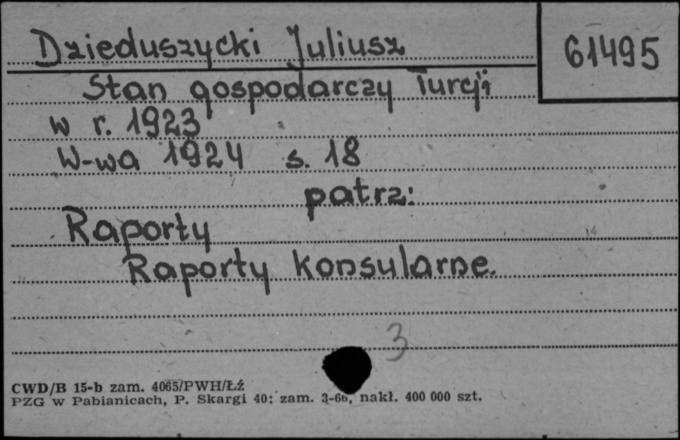 Dzieduszycki Juliusz
61495
Stan gospodarczy Turcji
w r. 1923
W-wa 1924 s. 18
patrz:
Raporty
Raporty konsularne.
3
CWD/B 15-b zam. 4065/PWH/Łź
PZG w Pabianicach, P. Skargi 40; zam. 3-66, nakł. 400 000 szt.